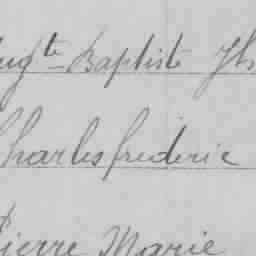 Baptiste
Charles frederic
Pierre Marie